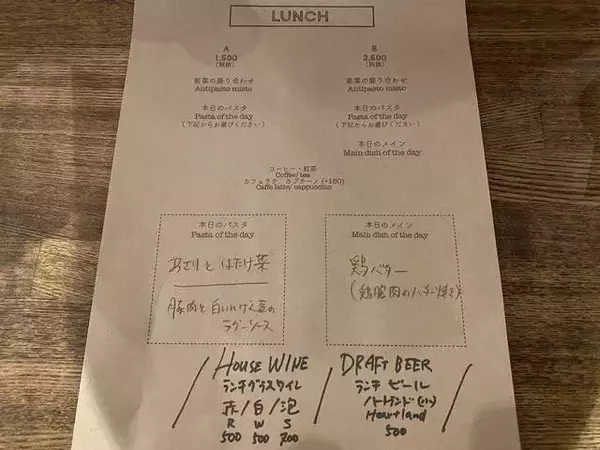 LUNCH
A
1,500
(税抜)
前菜の盛り合わせ
Antipasto misto
本日のパスタ
Pasta of the day
(下記からお選びください)
B
2,500
(税抜)
前菜の盛り合わせ
Antipasto misto
本日のパスタ
Pasta of the day
(下記からお選びください)
本日のメイン
Main dish of the day
コーヒー・紅茶
Coffee/ tea
カフェラテ、カプチーノ (+150)
Caffe latte/ cappuccino
本日のパスタ
Pasta of the day
あさりと はたけ菜
豚肉と白いんげん豆の
ラグーソース
本日のメイン
Main dish of the day
鶏バター
(鶏胸肉のバター焼き)
HOUSE WINE
ランチグラスワイン
赤/白/泡
R W S
500 500 700
DRAFT BEER
ランチ ビール
ハートランド
Heartland
500